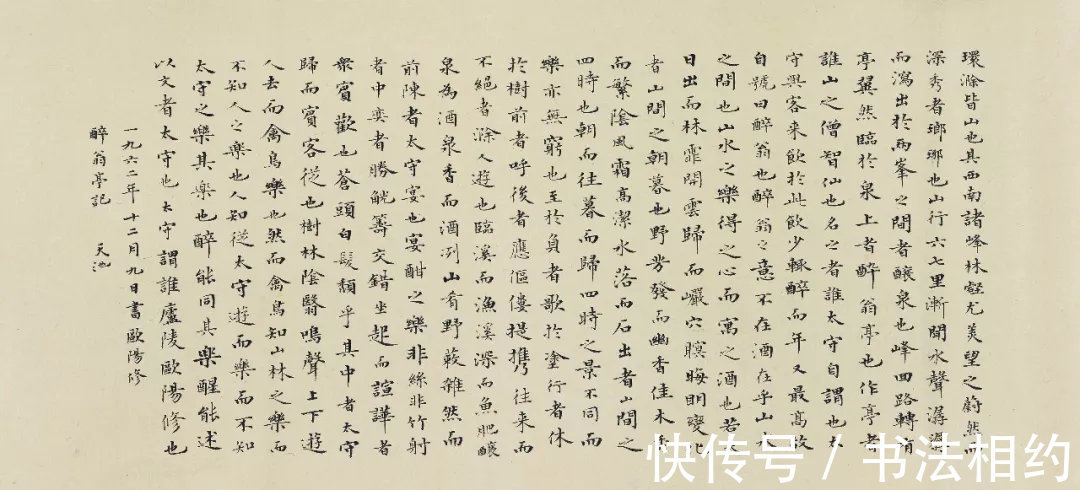 環滁皆山也其西南諸峰林壑尤美望之蔚然而
深秀者瑯琊也山行六七里漸聞水聲潺潺
而瀉出於兩峯之間者釀泉也峰回路轉有
亭翼然臨於泉上者醉翁亭也作亭者
誰山之僧智仙也名之者誰太守自謂也太
守與客來飲於此飲少輒醉而年又最高故
自號曰醉翁也醉翁之意不在酒在乎山水
之間也山水之樂得之心而寓之酒也若夫
日出而林霏開雲歸而巖穴暝晦明變化
者山間之朝暮也野芳發而幽香佳木秀
而繁陰風霜高潔水落而石出者山間之
四時也朝而往暮而歸四時之景不同而
樂亦無窮也至於負者歌於塗行者休
於樹前者呼後者應傴僂提攜往來而
不絕者滁人遊也臨溪而漁溪深而魚肥釀
泉為酒泉香而酒冽山肴野蔌雜然而
前陳者太守宴也宴酣之樂非絲非竹射
者中奕者勝觥籌交錯坐起而諠譁者
衆賓歡也蒼頭白髮頹乎其中者太守
歸而賓客從也樹林陰翳鳴聲上下遊
人去而禽鳥樂也然而禽鳥知山林之樂而
不知人之樂也人知從太守遊而樂而不知
太守之樂其樂也醉能同其樂醒能述
以文者太守也太守謂誰廬陵歐陽修也
一九六二年十二月九日書歐陽修
醉翁亭記 天池
快传号 / 书法相约